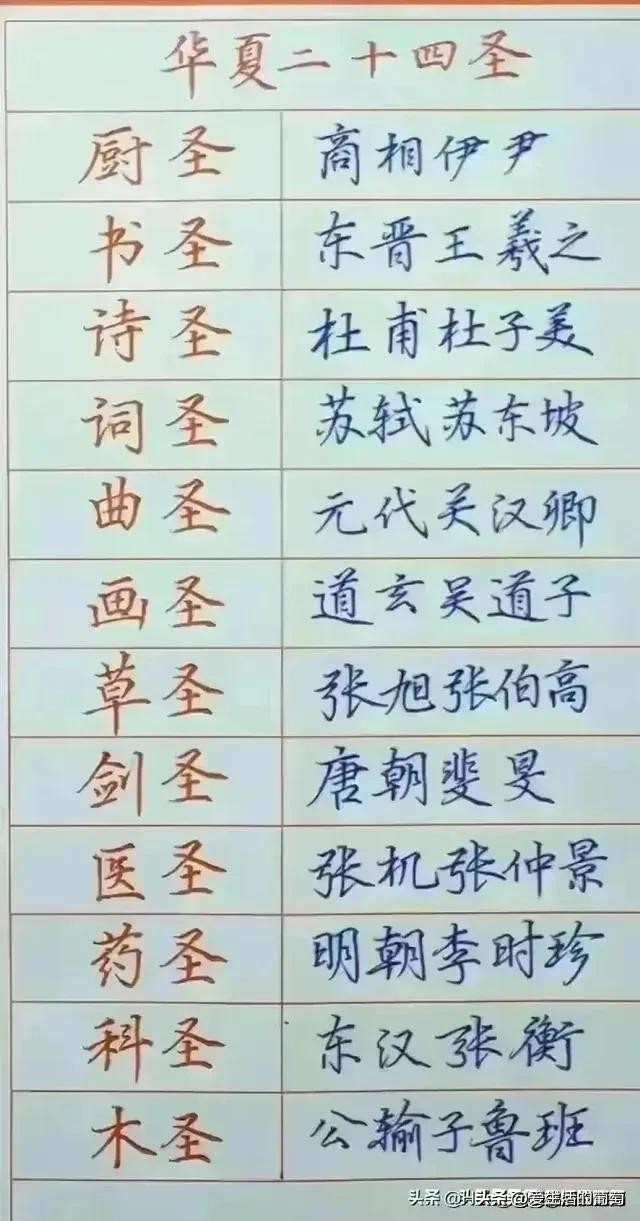 华夏二十四圣
厨圣 商相伊尹
书圣 东晋王羲之
诗圣 杜甫杜子美
词圣 苏轼苏东坡
曲圣 元代关汉卿
画圣 道玄吴道子
草圣 张旭张伯高
剑圣 唐朝斐旻
医圣 张机张仲景
药圣 明朝李时珍
科圣 东汉张衡
木圣 公输子鲁班
头条 @爱生活的葡萄